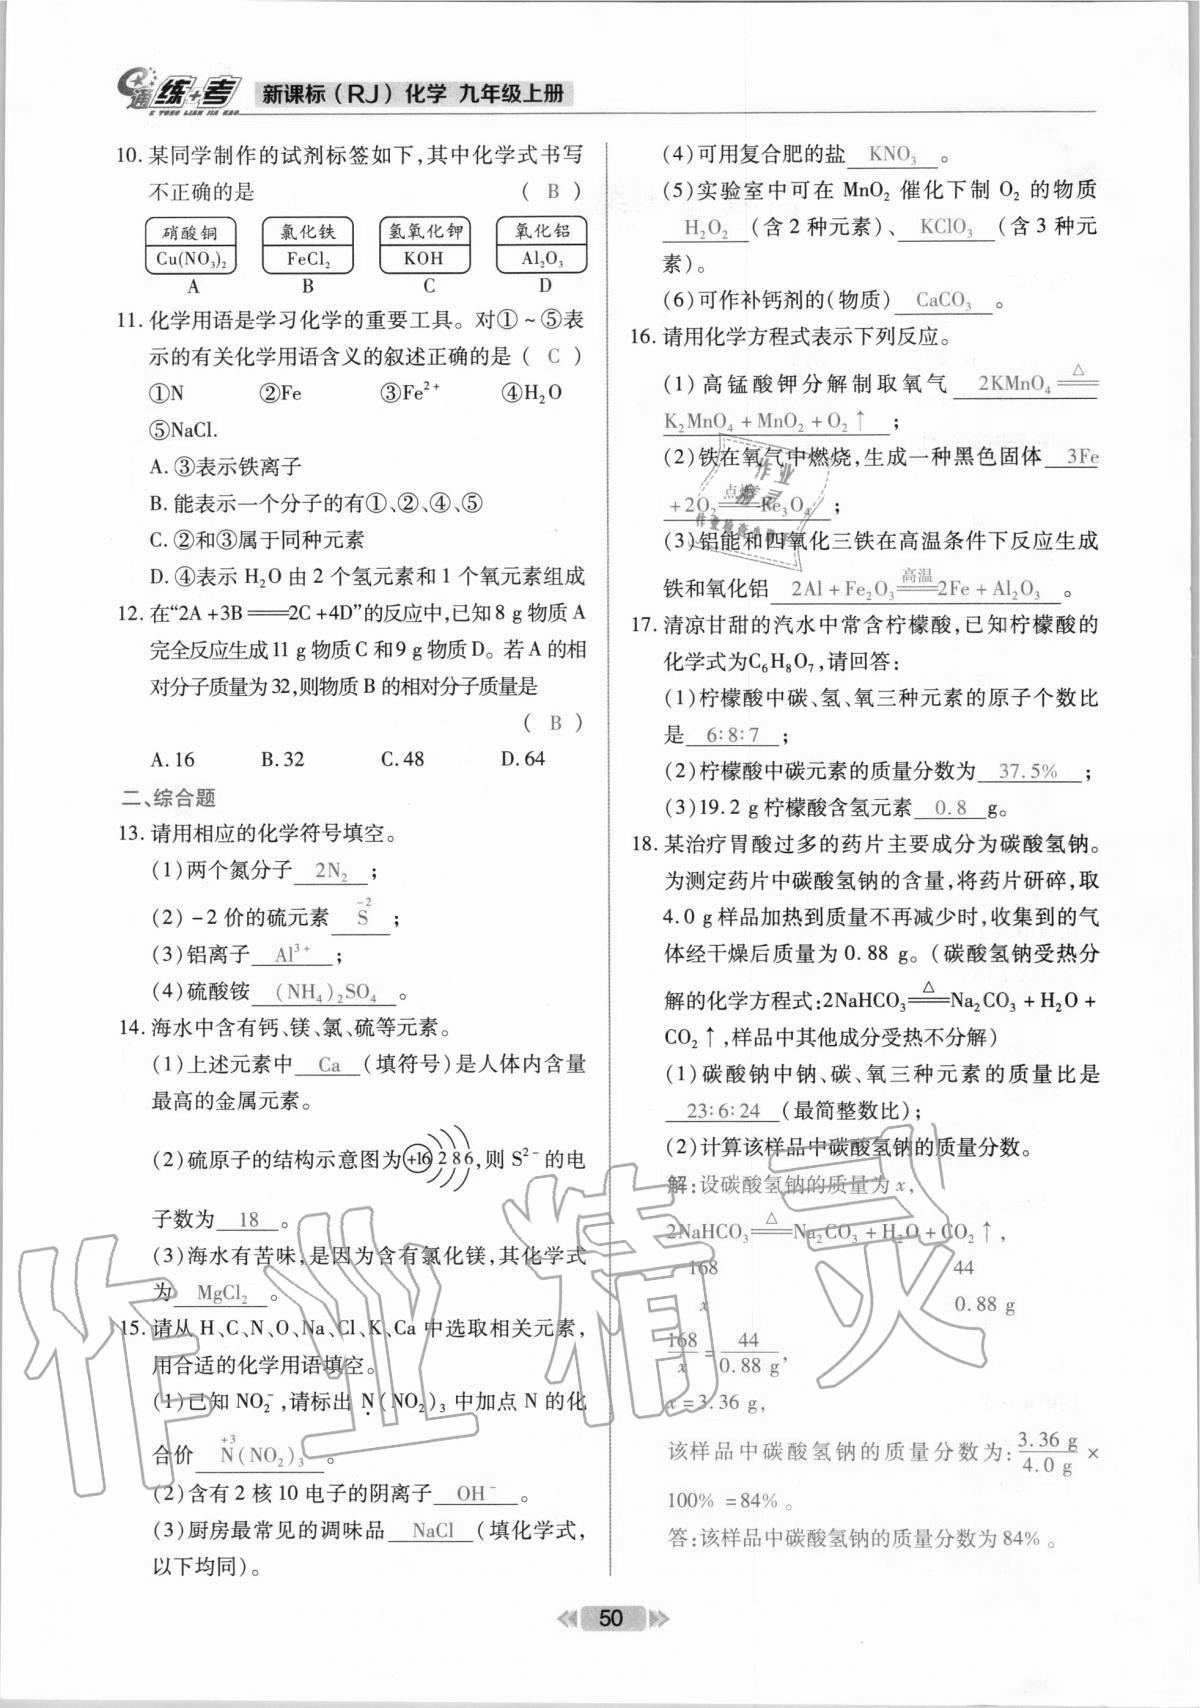 通 练+考
E TONG LIAN JIA KAO
新课标（RJ）化学 九年级上册
10. 某同学制作的试剂标签如下,其中化学式书写
不正确的是 ( B )
硝酸铜 氯化铁 氢氧化钾 氧化铝
Cu(NO₃)₂ FeCl₂ KOH Al₂O₃
A B C D
11. 化学用语是学习化学的重要工具。对①~⑤表
示的有关化学用语含义的叙述正确的是 ( C )
①N ②Fe ③Fe²⁺ ④H₂O
⑤NaCl.
A. ③表示铁离子
B. 能表示一个分子的有①、②、④、⑤
C. ②和③属于同种元素
D. ④表示 H₂O 由 2 个氢元素和 1 个氧元素组成
12. 在“2A+3B══2C+4D”的反应中,已知 8 g 物质 A
完全反应生成 11 g 物质 C 和 9 g 物质 D。若 A 的相
对分子质量为 32,则物质 B 的相对分子质量是
( B )
A. 16 B. 32 C. 48 D. 64
二、综合题
13. 请用相应的化学符号填空。
(1)两个氮分子 2N₂ ;
(2) -2 价的硫元素 S⁻² ;
(3)铝离子 Al³⁺ ;
(4)硫酸铵 (NH₄)₂SO₄ 。
14. 海水中含有钙、镁、氯、硫等元素。
(1)上述元素中 Ca (填符号)是人体内含量
最高的金属元素。
(2)硫原子的结构示意图为 +16 2 8 6 ,则 S²⁻ 的电
子数为 18 。
(3)海水有苦味,是因为含有氯化镁,其化学式
为 MgCl₂ 。
15. 请从 H、C、N、O、Na、Cl、K、Ca 中选取相关元素,
用合适的化学用语填空。
(1)已知 NO₂⁻ ,请标出 N(NO₂)₃ 中加点 N 的化
合价 +3 N(NO₂)₃ 。
(2)含有 2 核 10 电子的阴离子 OH⁻ 。
(3)厨房最常见的调味品 NaCl (填化学式,
以下均同)。
(4)可用复合肥的盐 KNO₃ 。
(5)实验室中可在 MnO₂ 催化下制 O₂ 的物质
H₂O₂ (含 2 种元素)、 KClO₃ (含 3 种元
素)。
(6)可作补钙剂的(物质) CaCO₃ 。
16. 请用化学方程式表示下列反应。
(1)高锰酸钾分解制取氧气 2KMnO₄ ══△
K₂MnO₄+MnO₂+O₂↑ ;
(2)铁在氧气中燃烧,生成一种黑色固体 3Fe
+2O₂ ══点燃 Fe₃O₄ ;
(3)铝能和四氧化三铁在高温条件下反应生成
铁和氧化铝 2Al+Fe₂O₃ ══高温 2Fe+Al₂O₃ 。
17. 清凉甘甜的汽水中常含柠檬酸,已知柠檬酸的
化学式为C₆H₈O₇,请回答:
(1)柠檬酸中碳、氢、氧三种元素的原子个数比
是 6:8:7 ;
(2)柠檬酸中碳元素的质量分数为 37.5% ;
(3)19.2 g 柠檬酸含氢元素 0.8 g。
18. 某治疗胃酸过多的药片主要成分为碳酸氢钠。
为测定药片中碳酸氢钠的含量,将药片研碎,取
4.0 g 样品加热到质量不再减少时,收集到的气
体经干燥后质量为 0.88 g。(碳酸氢钠受热分
解的化学方程式:2NaHCO₃ ══△ Na₂CO₃+H₂O+
CO₂↑,样品中其他成分受热不分解)
(1)碳酸钠中钠、碳、氧三种元素的质量比是
23:6:24 (最简整数比);
(2)计算该样品中碳酸氢钠的质量分数。
解:设碳酸氢钠的质量为 x,
2NaHCO₃ ══△ Na₂CO₃+H₂O+CO₂↑,
168 44
x 0.88 g
168/x = 44/0.88 g,
x=3.36 g,
该样品中碳酸氢钠的质量分数为: 3.36 g/4.0 g ×
100% =84% 。
答:该样品中碳酸氢钠的质量分数为 84% 。
50
作业精灵